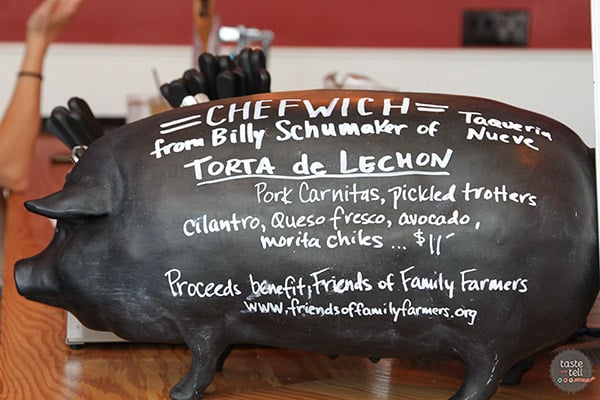 = CHEFWICH =
from Billy Schumaker of Taqueria Nueve
TORTA de LECHON
Pork Carnitas, pickled trotters
cilantro, Queso fresco, avocado,
morita chiles ... $11
Proceeds benefit, Friends of Family Farmers
www.friendsoffamilyfarmers.org
taste
and
tell